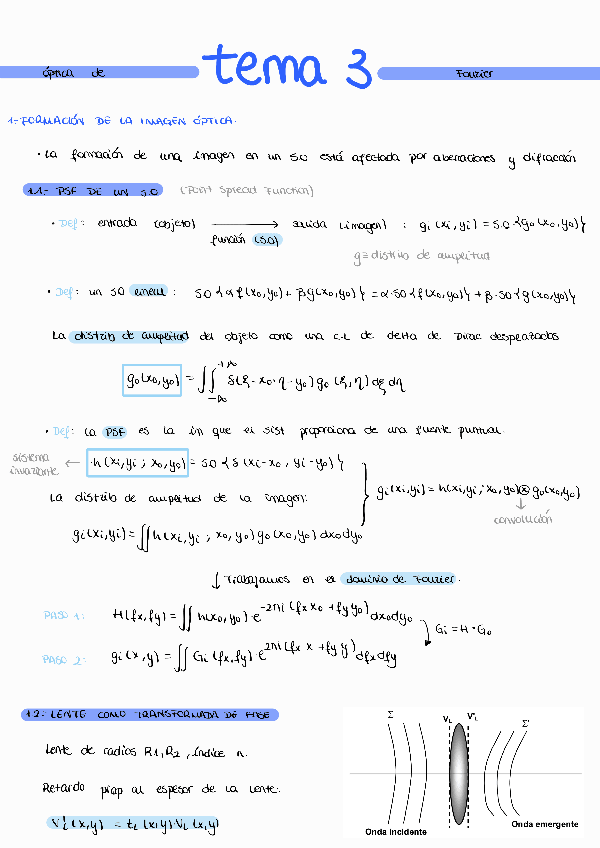 óptica de tema 3 Fourier
1.-FORMACIÓN DE LA IMAGEN ÓPTICA.
· La formación de una imagen en un S.O está afectada por aberraciones y difracción
1.1.- PSF DE UN S.O (Point Spread Function)
· Def: entrada (objeto) ⟶ salida (imagen) : gi (xi, yi) = S.O {go (xo, yo)}
función (S.O)
g ≡ distribo de amplitud
· Def: un SO lineal : SO {α f(xo,yo) + β g(xo,yo)} = α·SO {f(xo,yo)} + β·SO {g(xo,yo)}
La distrib de amplitud del objeto como una C.L de delta de Dirac desplazadas
go(xo,yo) = ∬ δ(ξ - xo · η - yo) go (ξ, η) dξ dη
· Def: La PSF es la im que el sist proporciona de una fuente puntual.
sistema invariante ← h(xi, yi ; xo, yo) = S.O {δ (xi-xo , yi-yo)}
La distrib de amplitud de la imagen:
gi(xi,yi) = h(xi,yi ; xo,yo) ⊗ go(xo,yo)
convolución
gi (xi, yi) = ∬ h(xi, yi ; xo, yo) go (xo, yo) dxo dyo
↓ Trabajamos en el dominio de Fourier.
PASO 1: H(fx, fy) = ∬ h(xo, yo) · e^-2πi (fx xo + fy yo) dxo dyo
Gi = H · Go
PASO 2: gi (x, y) = ∬ Gi (fx, fy) · e^2πi (fx x + fy y) dfx dfy
1.2.- LENTE COMO TRANSFORMADA DE FASE
Lente de radios R1, R2 , índice n.
Retardo prop al espesor de la lente.
V'L (x,y) = tL (x,y) VL (x,y)
Σ VL V'L Σ'
Onda incidente
Onda emergente